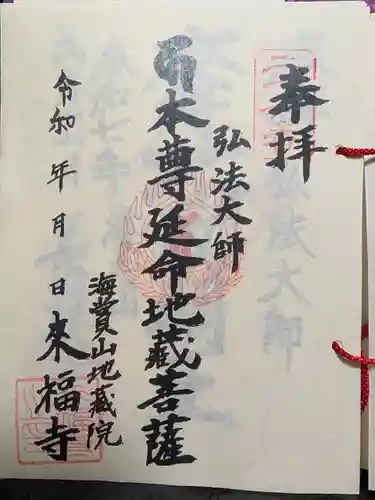 奉拝
弘法大師
本尊延命地蔵菩薩
令和 年 月 日
海賞山地蔵院
来福寺